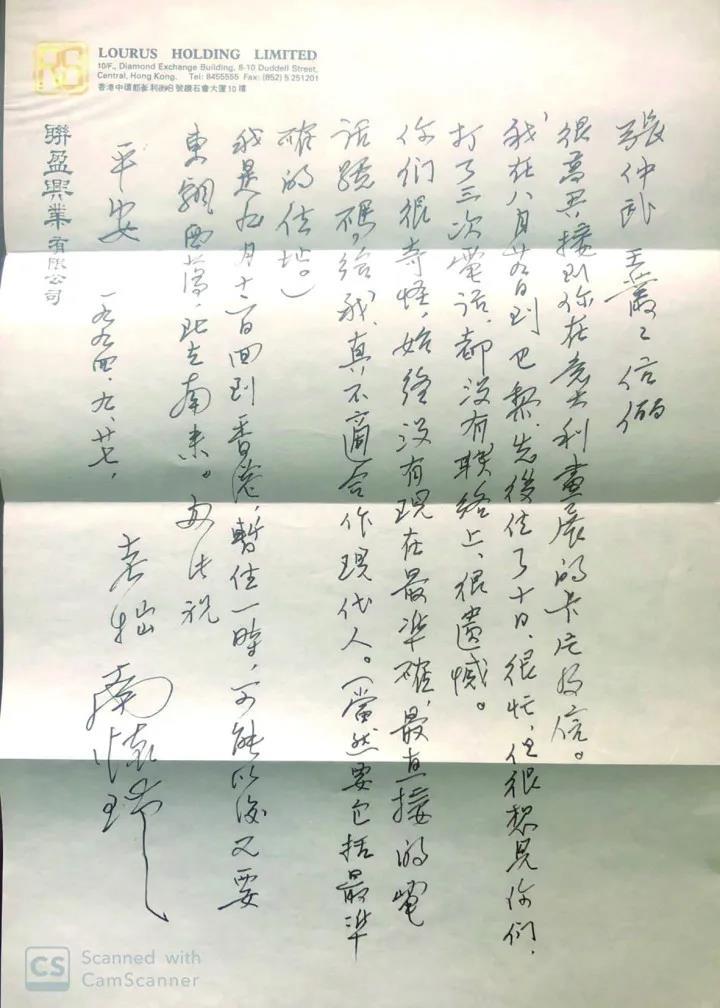 LOURUS HOLDING LIMITED
10/F., Diamond Exchange Building, 8-10 Duddell Street,
Central, Hong Kong. Tel: 8455555 Fax: (852) 5 251201
香港中環都爹利街8號鑽石會大厦10樓
聯盈興業有限公司
張仲 王蕭々 伉儷
很高興接到你在意大利畫展的卡片及信。
我在八月廿日到巴黎,先後住了十日,很忙,但很想見你們,
打了三次電話,都没有联络上,很遺憾。
你們很奇怪,始终没有現在最準確,最直接的電
話號碼,给我,真不適合作現代人。(當然要包括最準
確的住址。)
我是九月十二日回到香港,暫住一時,可能以後又要
東飄西蕩,北去南来。匆此祝
平安
一九九四、九、廿七、
老拙 南懷瑾
CS
Scanned with
CamScanner